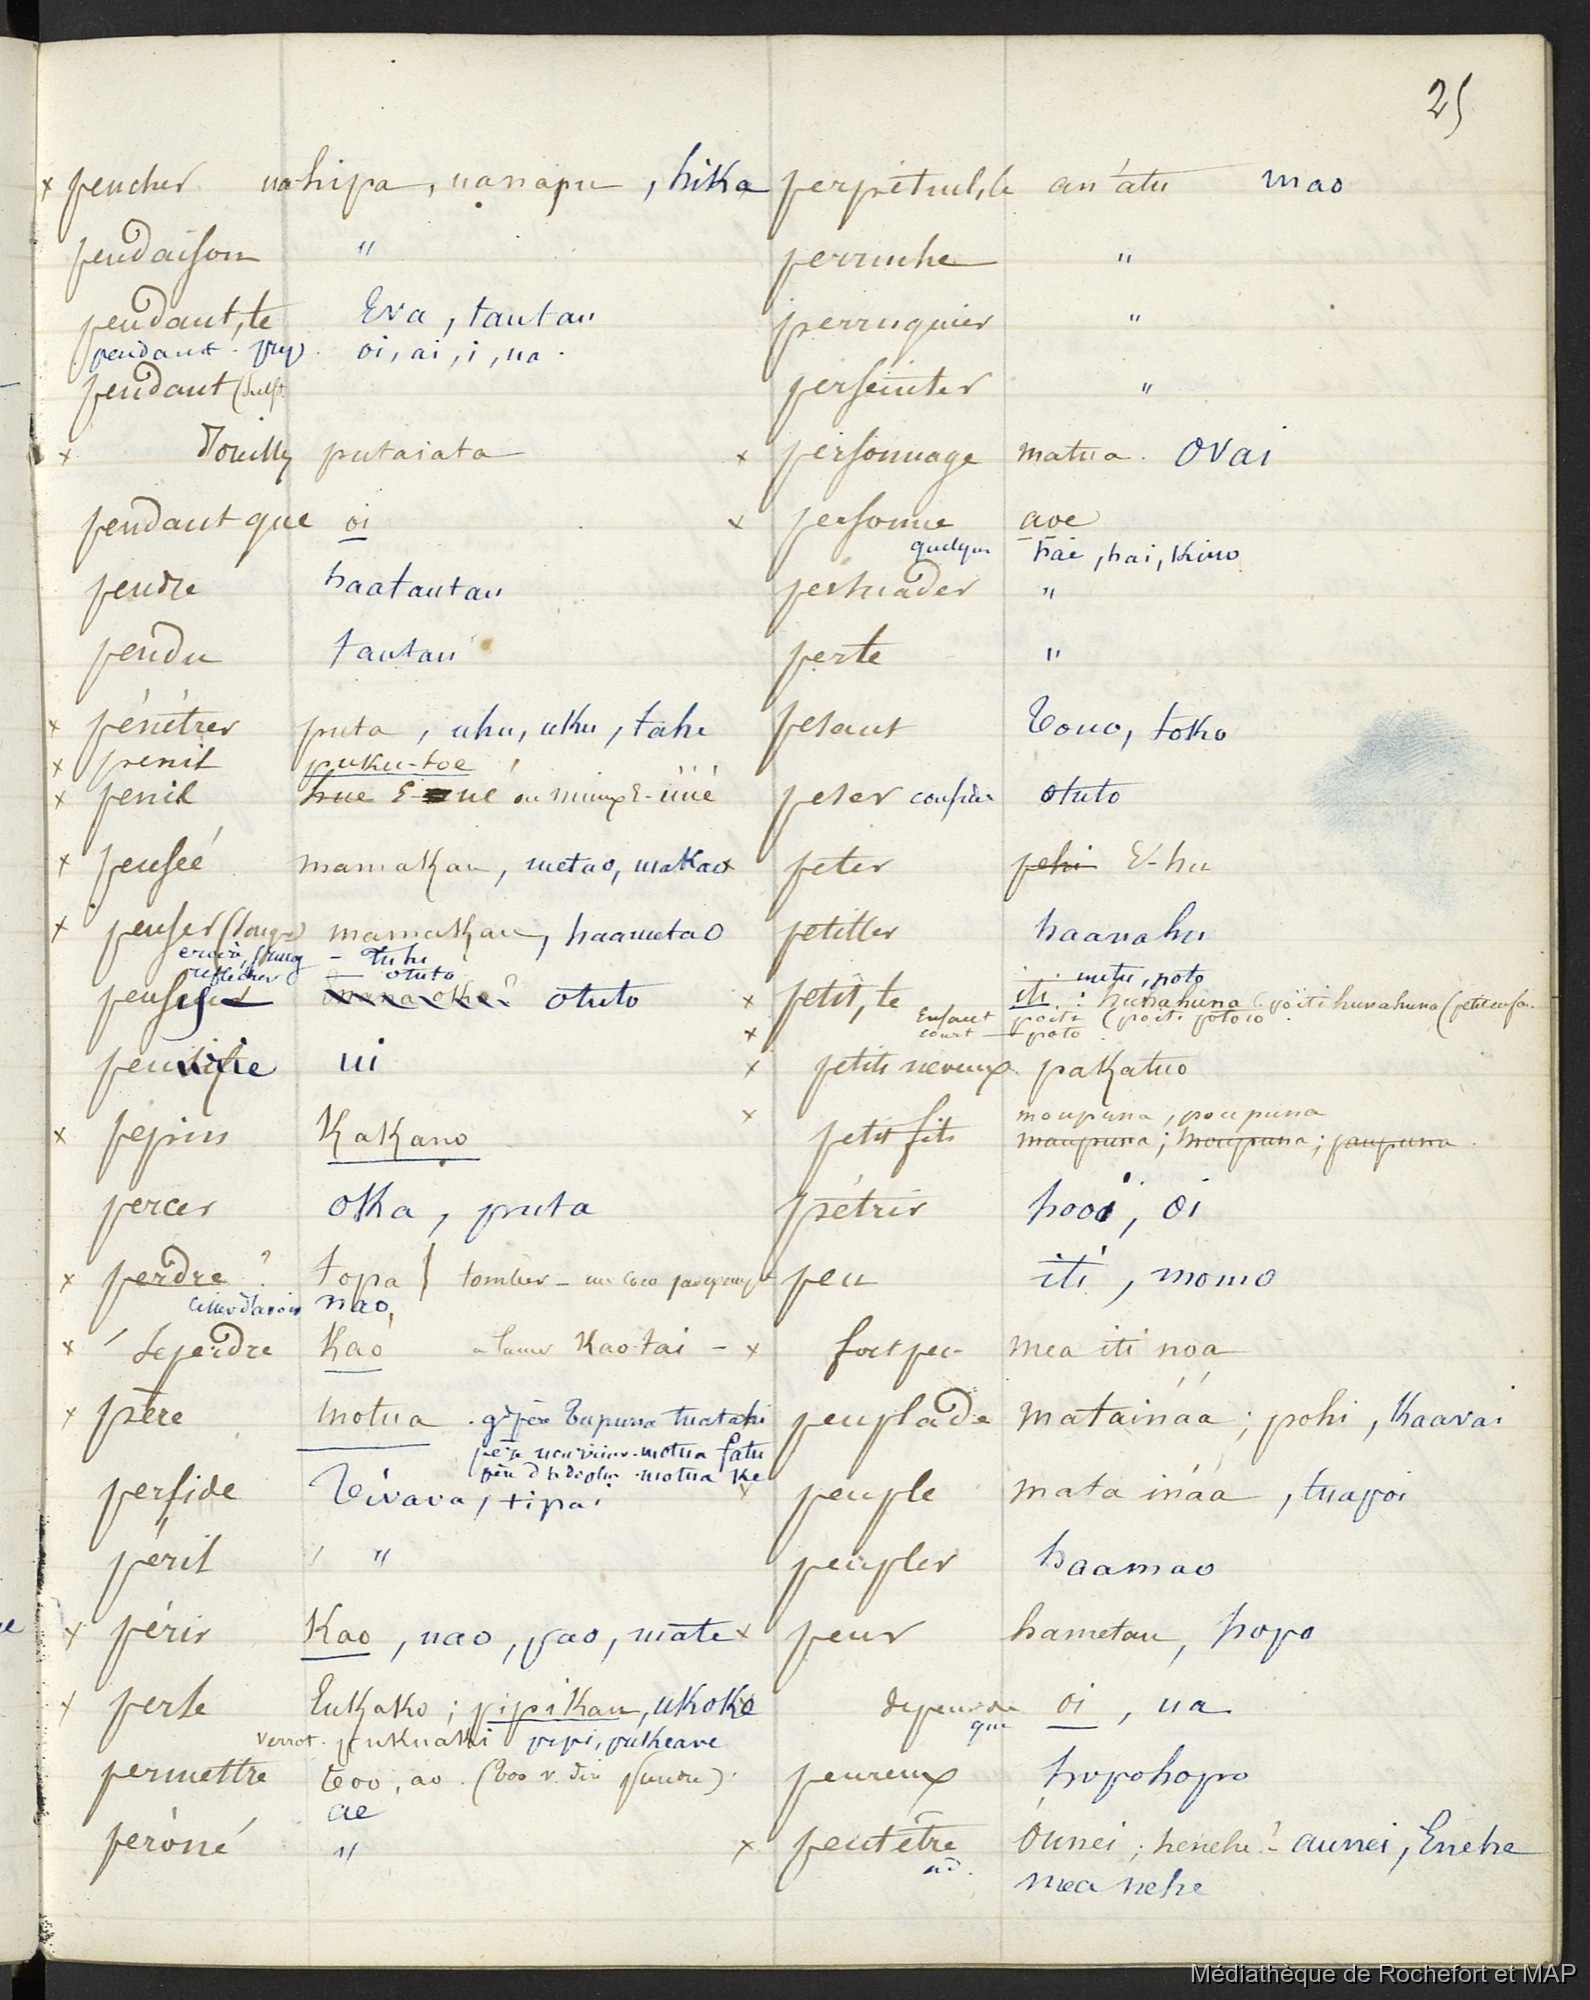 25
x pencher nahipa, nanapu, hika
pendaison "
pendant, te Eva, tautau
pendant. prép. oi, ai, i, na.
pendant (subst.
x d'oreille putaiata
pendant que oi
pendre haatautau
pendu tautau
x pénétrer puta, uhu, uku, tahe
x penil puku-toe
x penil hue E- ué ou mieux E-
x pensée mamakau, metao, makao
x penser (songer mamakau, haametao
croire, - tuhi
réfléchir — otuto
pensif otuto
ui
x pepins Kakano
percer oka, puta
x perdre ? topa } tomber - un coco par exemple
nao,
x se perdre Kao à la mer Kao-tai -
x père motua . gd père Tupuna tuatahi
père nourricier. motua fatu
père d'adoption motua Ke
perfide Tivava, tipai
péril "
x périr Kao, nao, pao, mate
x perle Eukako ; pipikau, ukoko
verrot. pukuaki pipi, pukeave
permettre Too, ao.
ae
péroné "
perpétuel, le an'atu mao
perruche "
perruquier "
"
x personnage matua. Ovai
x personne aoe
quelqu'un hae, hai, Kino
persuader "
perte "
pesant Touo, toko
peser considér otuto
x peter pehi E-hu
petiller haanahu
metu, poto
x petit, te iti : hunahuna (poiti hunahuna (petit enfan
Enfant poiti (poiti potoio
x court — poto
x petits neveux. pakatuo
x moupuna, poupuna
petit fils maupuna ; moupuna ; paupuna
pétrir hooi, oi
peu iti, momo
x fort peu mea iti noa
peuplade matainàa ; pohi, Kaavai
x peuple mata inàa, tuapoi
peupler haamao
x peur hametau, hopo
de peur de oi, ua
que
peureux hopohopo
x peutêtre óunei ; henehe ? - aunei, Enehe
ad. mea nehe
Médiathèque de Rochefort et MAP